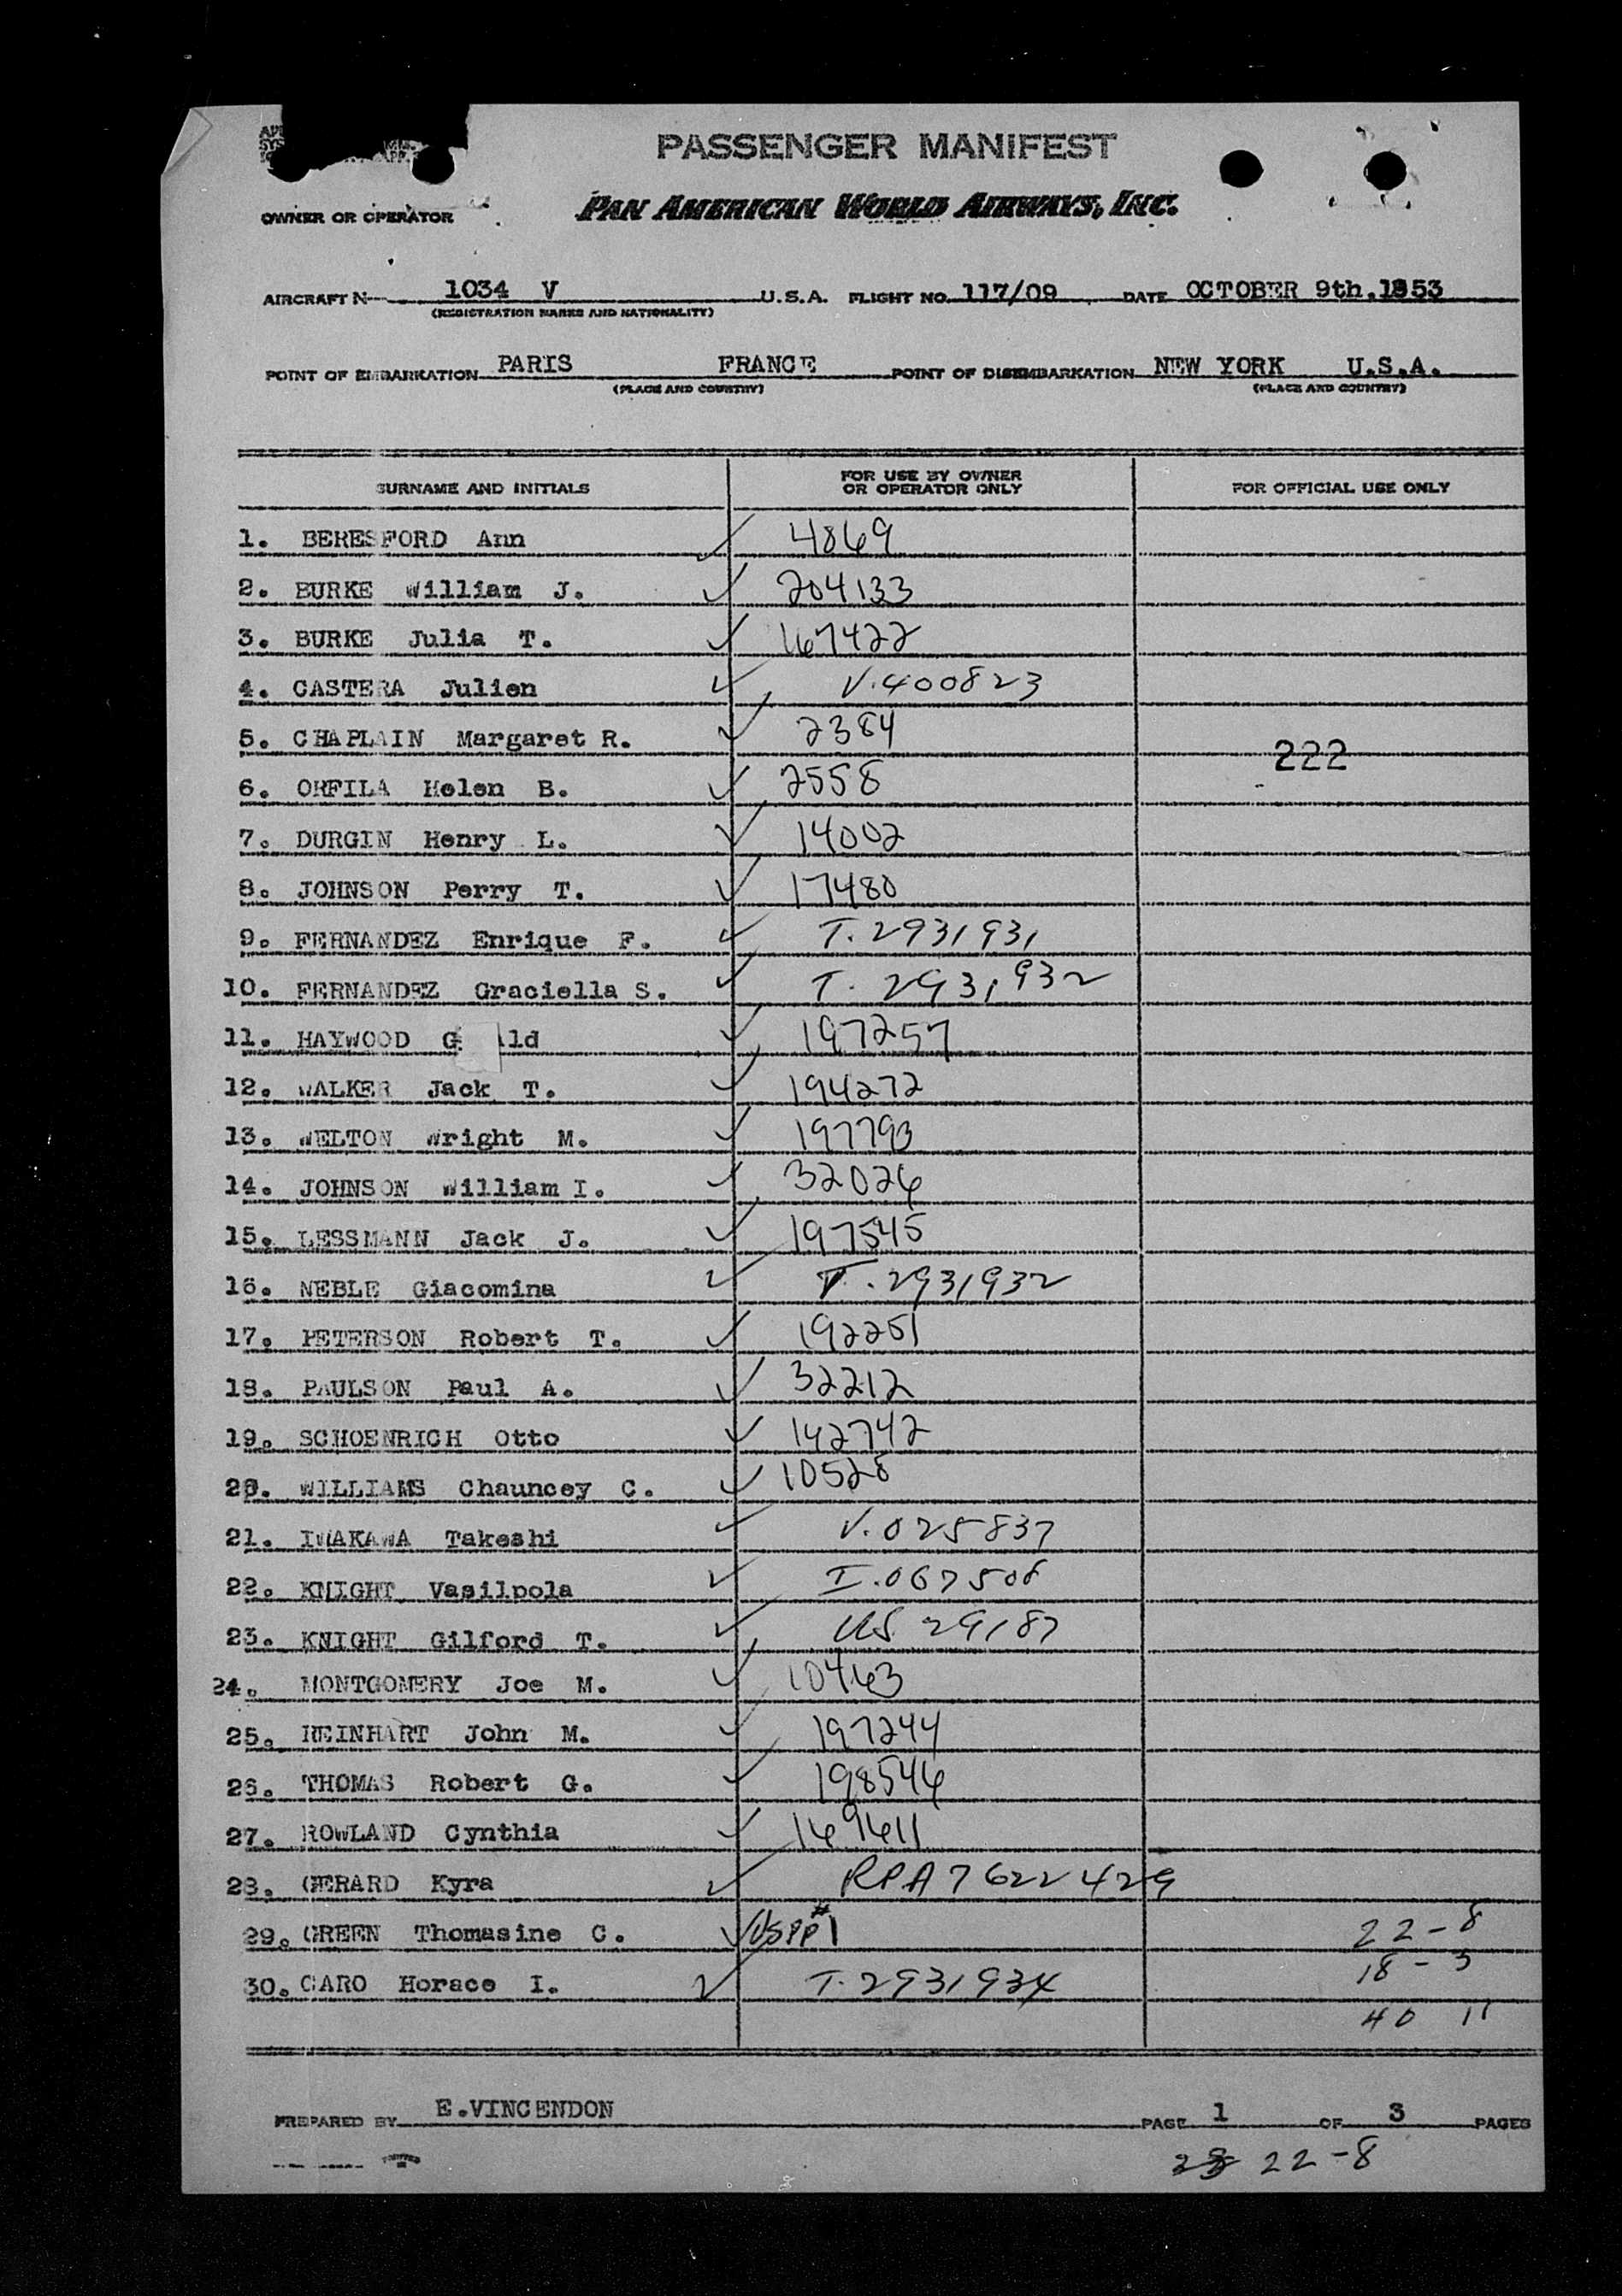 PASSENGER MANIFEST
OWNER OR OPERATOR PAN AMERICAN WORLD AIRWAYS, INC.
AIRCRAFT N 1034 V U.S.A. FLIGHT NO. 117/09 DATE OCTOBER 9th.1953
(REGISTRATION MARKS AND NATIONALITY)
POINT OF EMBARKATION PARIS FRANCE POINT OF DISEMBARKATION NEW YORK U.S.A.
(PLACE AND COUNTRY) (PLACE AND COUNTRY)
SURNAME AND INITIALS FOR USE BY OWNER OR OPERATOR ONLY FOR OFFICIAL USE ONLY
1. BERESFORD Ann ✓ 4869
2. BURKE William J. ✓ 204133
3. BURKE Julia T. ✓ 167422
4. CASTERA Julien ✓ V.400823
5. CHAPLAIN Margaret R. ✓ 2384
222
6. ORFILA Helen B. ✓ 2558
7. DURGIN Henry L. ✓ 14002
8. JOHNSON Perry T. ✓ 17480
9. FERNANDEZ Enrique F. ✓ T.2931931
10. FERNANDEZ Graciella S. ✓ T.2931932
11. HAYWOOD G ld ✓ 197257
12. WALKER Jack T. ✓ 194272
13. WELTON Wright M. ✓ 197793
14. JOHNSON William I. ✓ 32026
15. LESSMANN Jack J. ✓ 197545
16. NEBLE Giacomina ✓ T.2931932
17. PETERSON Robert T. ✓ 192251
18. PAULSON Paul A. ✓ 32212
19. SCHOENRICH Otto ✓ 142742
20. WILLIAMS Chauncey C. ✓ 10528
21. IWAKAWA Takeshi ✓ V.025837
22. KNIGHT Vasilpola ✓ I.067508
23. KNIGHT Gilford T. ✓ US 29187
24. MONTGOMERY Joe M. ✓ 10463
25. REINHART John M. ✓ 197244
26. THOMAS Robert G. ✓ 198546
27. ROWLAND Cynthia ✓ 169611
28. GERARD Kyra ✓ RPA7622429
29. GREEN Thomasine C. ✓ USPP#1 22-8
18-3
30. CARO Horace I. ✓ T.2931934
40 11
PREPARED BY E.VINCENDON PAGE 1 OF 3 PAGES
22-8